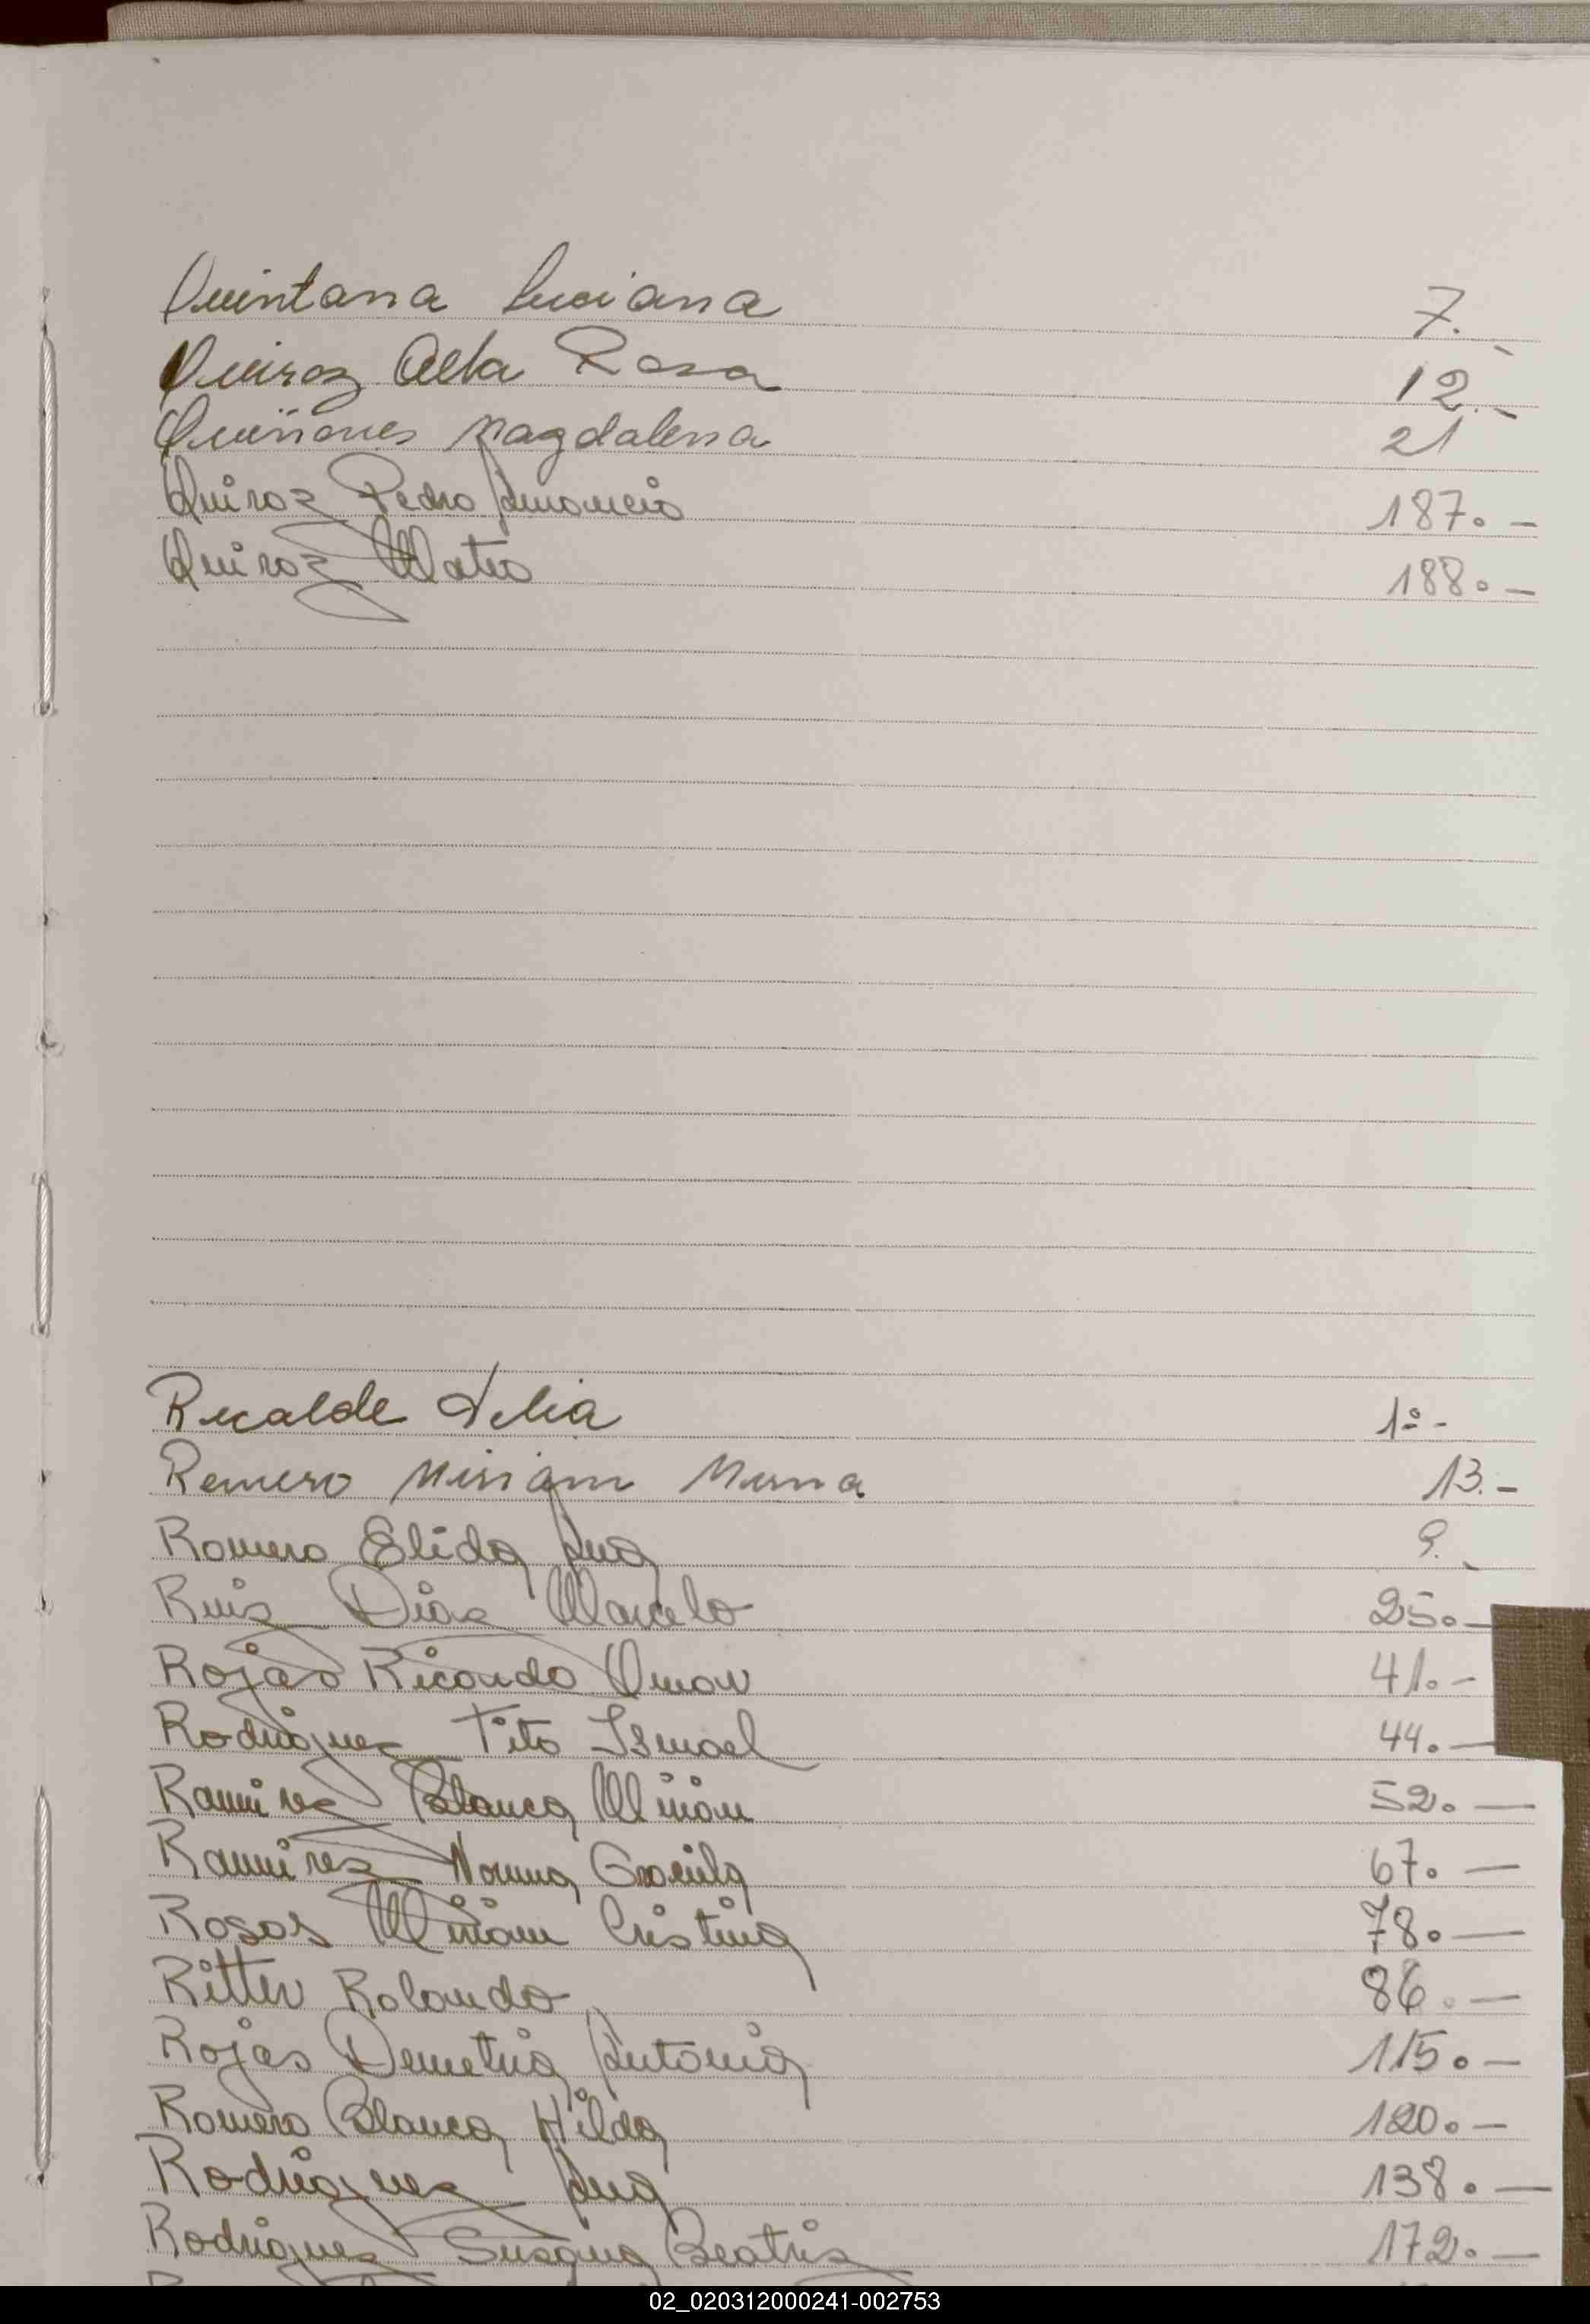 Quintana Luciana 7.-
Quiroz Alba Rosa 12.-
Quiñones Magdalena 21
Quiroz Pedro Amancio 187.-
Quiroz Mateo 188.-
Recalde Delia 1º-
Romero Miriam Mirna 13.-
Romero Elida Ana 9.-
Ruiz Diaz Marcelo 25.-
Rojas Ricardo Omar 41.-
Rodriguez Tito Ismael 44.-
Ramirez Blanca Miriam 52.-
Ramirez Norma Graciela 67.-
Rosas Miriam Cristina 78.-
Ritter Rolando 86.-
Rojas Demetria Antonia 115.-
Romero Blanca Hilda 120.-
Rodriguez Ana 138.-
Rodriguez Susana Beatriz 172.-
02_020312000241-002753